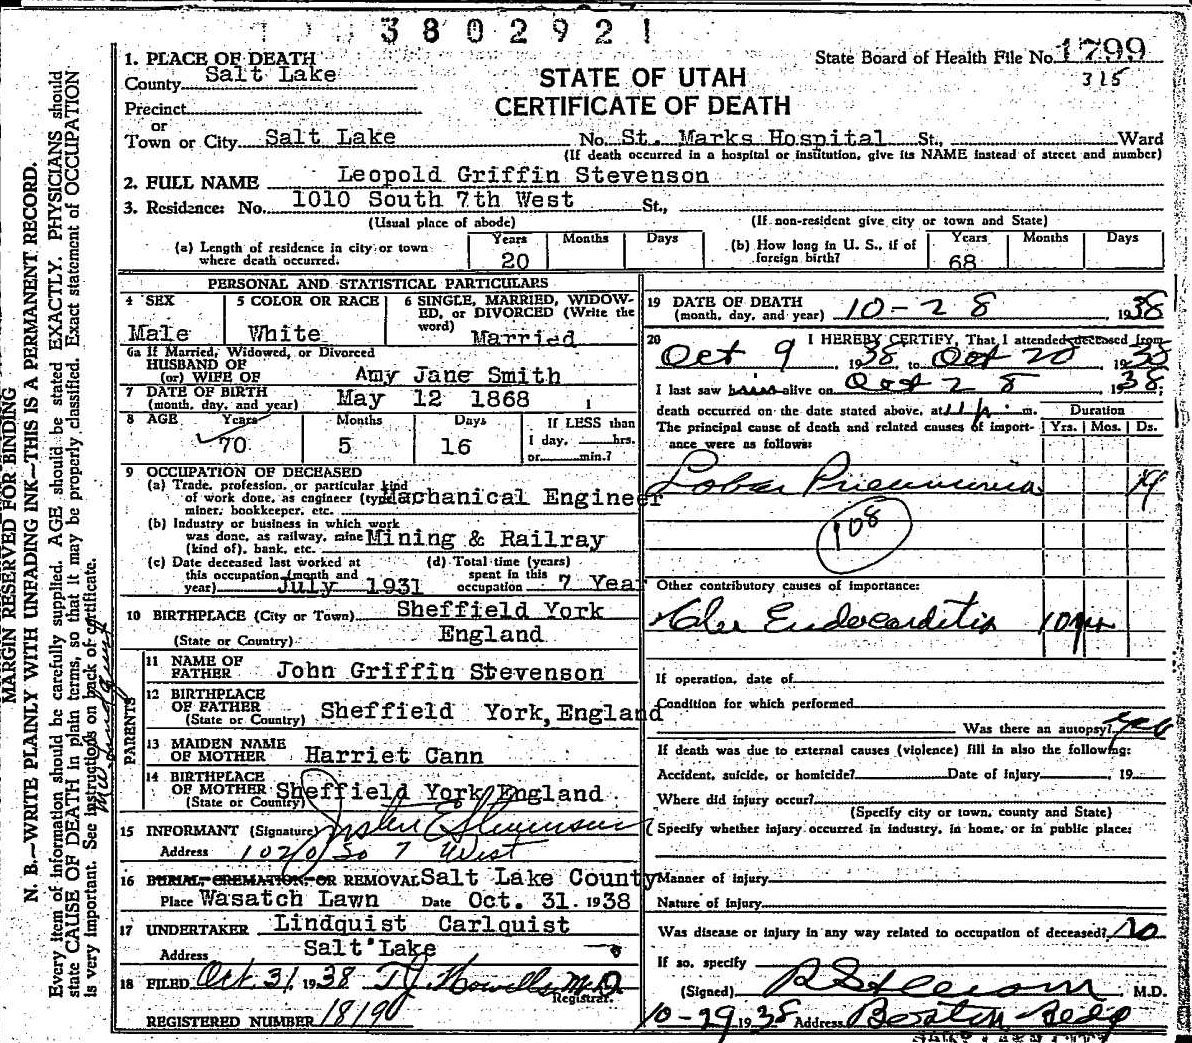 3802921
1. PLACE OF DEATH
State Board of Health File No. 1799
County Salt Lake
315
STATE OF UTAH
CERTIFICATE OF DEATH
Precinct
or
Town or City Salt Lake No. St. Marks Hospital St., Ward
(If death occurred in a hospital or institution, give its NAME instead of street and number)
2. FULL NAME Leopold Griffin Stevenson
3. Residence: No. 1010 South 7th West St.,
(Usual place of abode) (If non-resident give city or town and State)
(a) Length of residence in city or town where death occurred. Years 20 Months Days
(b) How long in U. S., if of foreign birth? Years 68 Months Days
PERSONAL AND STATISTICAL PARTICULARS
4 SEX Male
5 COLOR OR RACE White
6 SINGLE, MARRIED, WIDOW-
ED, or DIVORCED (Write the
word) Married
6a If Married, Widowed, or Divorced
HUSBAND OF
(or) WIFE OF Amy Jane Smith
7 DATE OF BIRTH
(month, day, and year) May 12 1868
8 AGE Years 70 Months 5 Days 16 If LESS than
1 day, hrs.
or min.?
9 OCCUPATION OF DECEASED
(a) Trade, profession, or particular kind
of work done, as engineer (type Machanical Engineer
miner, bookkeeper, etc.
(b) Industry or business in which work
was done, as railway, mine Mining & Railray
(kind of), bank, etc.
(c) Date deceased last worked at
this occupation (month and
year) July 1931
(d) Total time (years)
spent in this
occupation 7 Year
10 BIRTHPLACE (City or Town) Sheffield York
(State or Country) England
PARENTS
11 NAME OF
FATHER John Griffin Stevenson
12 BIRTHPLACE
OF FATHER
(State or Country) Sheffield York, England
13 MAIDEN NAME
OF MOTHER Harriet Cann
14 BIRTHPLACE
OF MOTHER
(State or Country) Sheffield York England
15 INFORMANT (Signature) Stevenson
Address 1020 So 7 West
16 BURIAL, CREMATION, OR REMOVAL Salt Lake County
Place Wasatch Lawn Date Oct. 31. 1938
17 UNDERTAKER Lindquist Carlquist
Address Salt Lake
18 FILED Oct 31, 1938 T.J. Howells M.D.
Registrar.
REGISTERED NUMBER 18190
19 DATE OF DEATH
(month, day, and year) 10-28 1938
20 I HEREBY CERTIFY, That I attended deceased from
Oct 9 1938, to Oct 20 1938
I last saw him alive on Oct 28 1938.
death occurred on the date stated above, at 11 p. m.
The principal cause of death and related causes of import-
ance were as follows:
Duration
Yrs. Mos. Ds.
Lobar Pneumonia 19
108
Other contributory causes of importance:
Endocarditis 10 yr
If operation, date of
Condition for which performed
Was there an autopsy? yes
If death was due to external causes (violence) fill in also the following:
Accident, suicide, or homicide? Date of injury , 19
Where did injury occur?
(Specify city or town, county and State)
Specify whether injury occurred in industry, in home, or in public place:
Manner of injury
Nature of injury
Was disease or injury in any way related to occupation of deceased? No
If so, specify
(Signed) M.D.
10-29 1938 Address Boston Bldg
SALT LAKE CITY
MARGIN RESERVED FOR BINDING
N. B.—WRITE PLAINLY WITH UNFADING INK—THIS IS A PERMANENT RECORD.
Every item of information should be carefully supplied. AGE should be stated EXACTLY. PHYSICIANS should
state CAUSE OF DEATH in plain terms, so that it may be properly classified. Exact statement of OCCUPATION
is very important. See instructions on back of certificate.